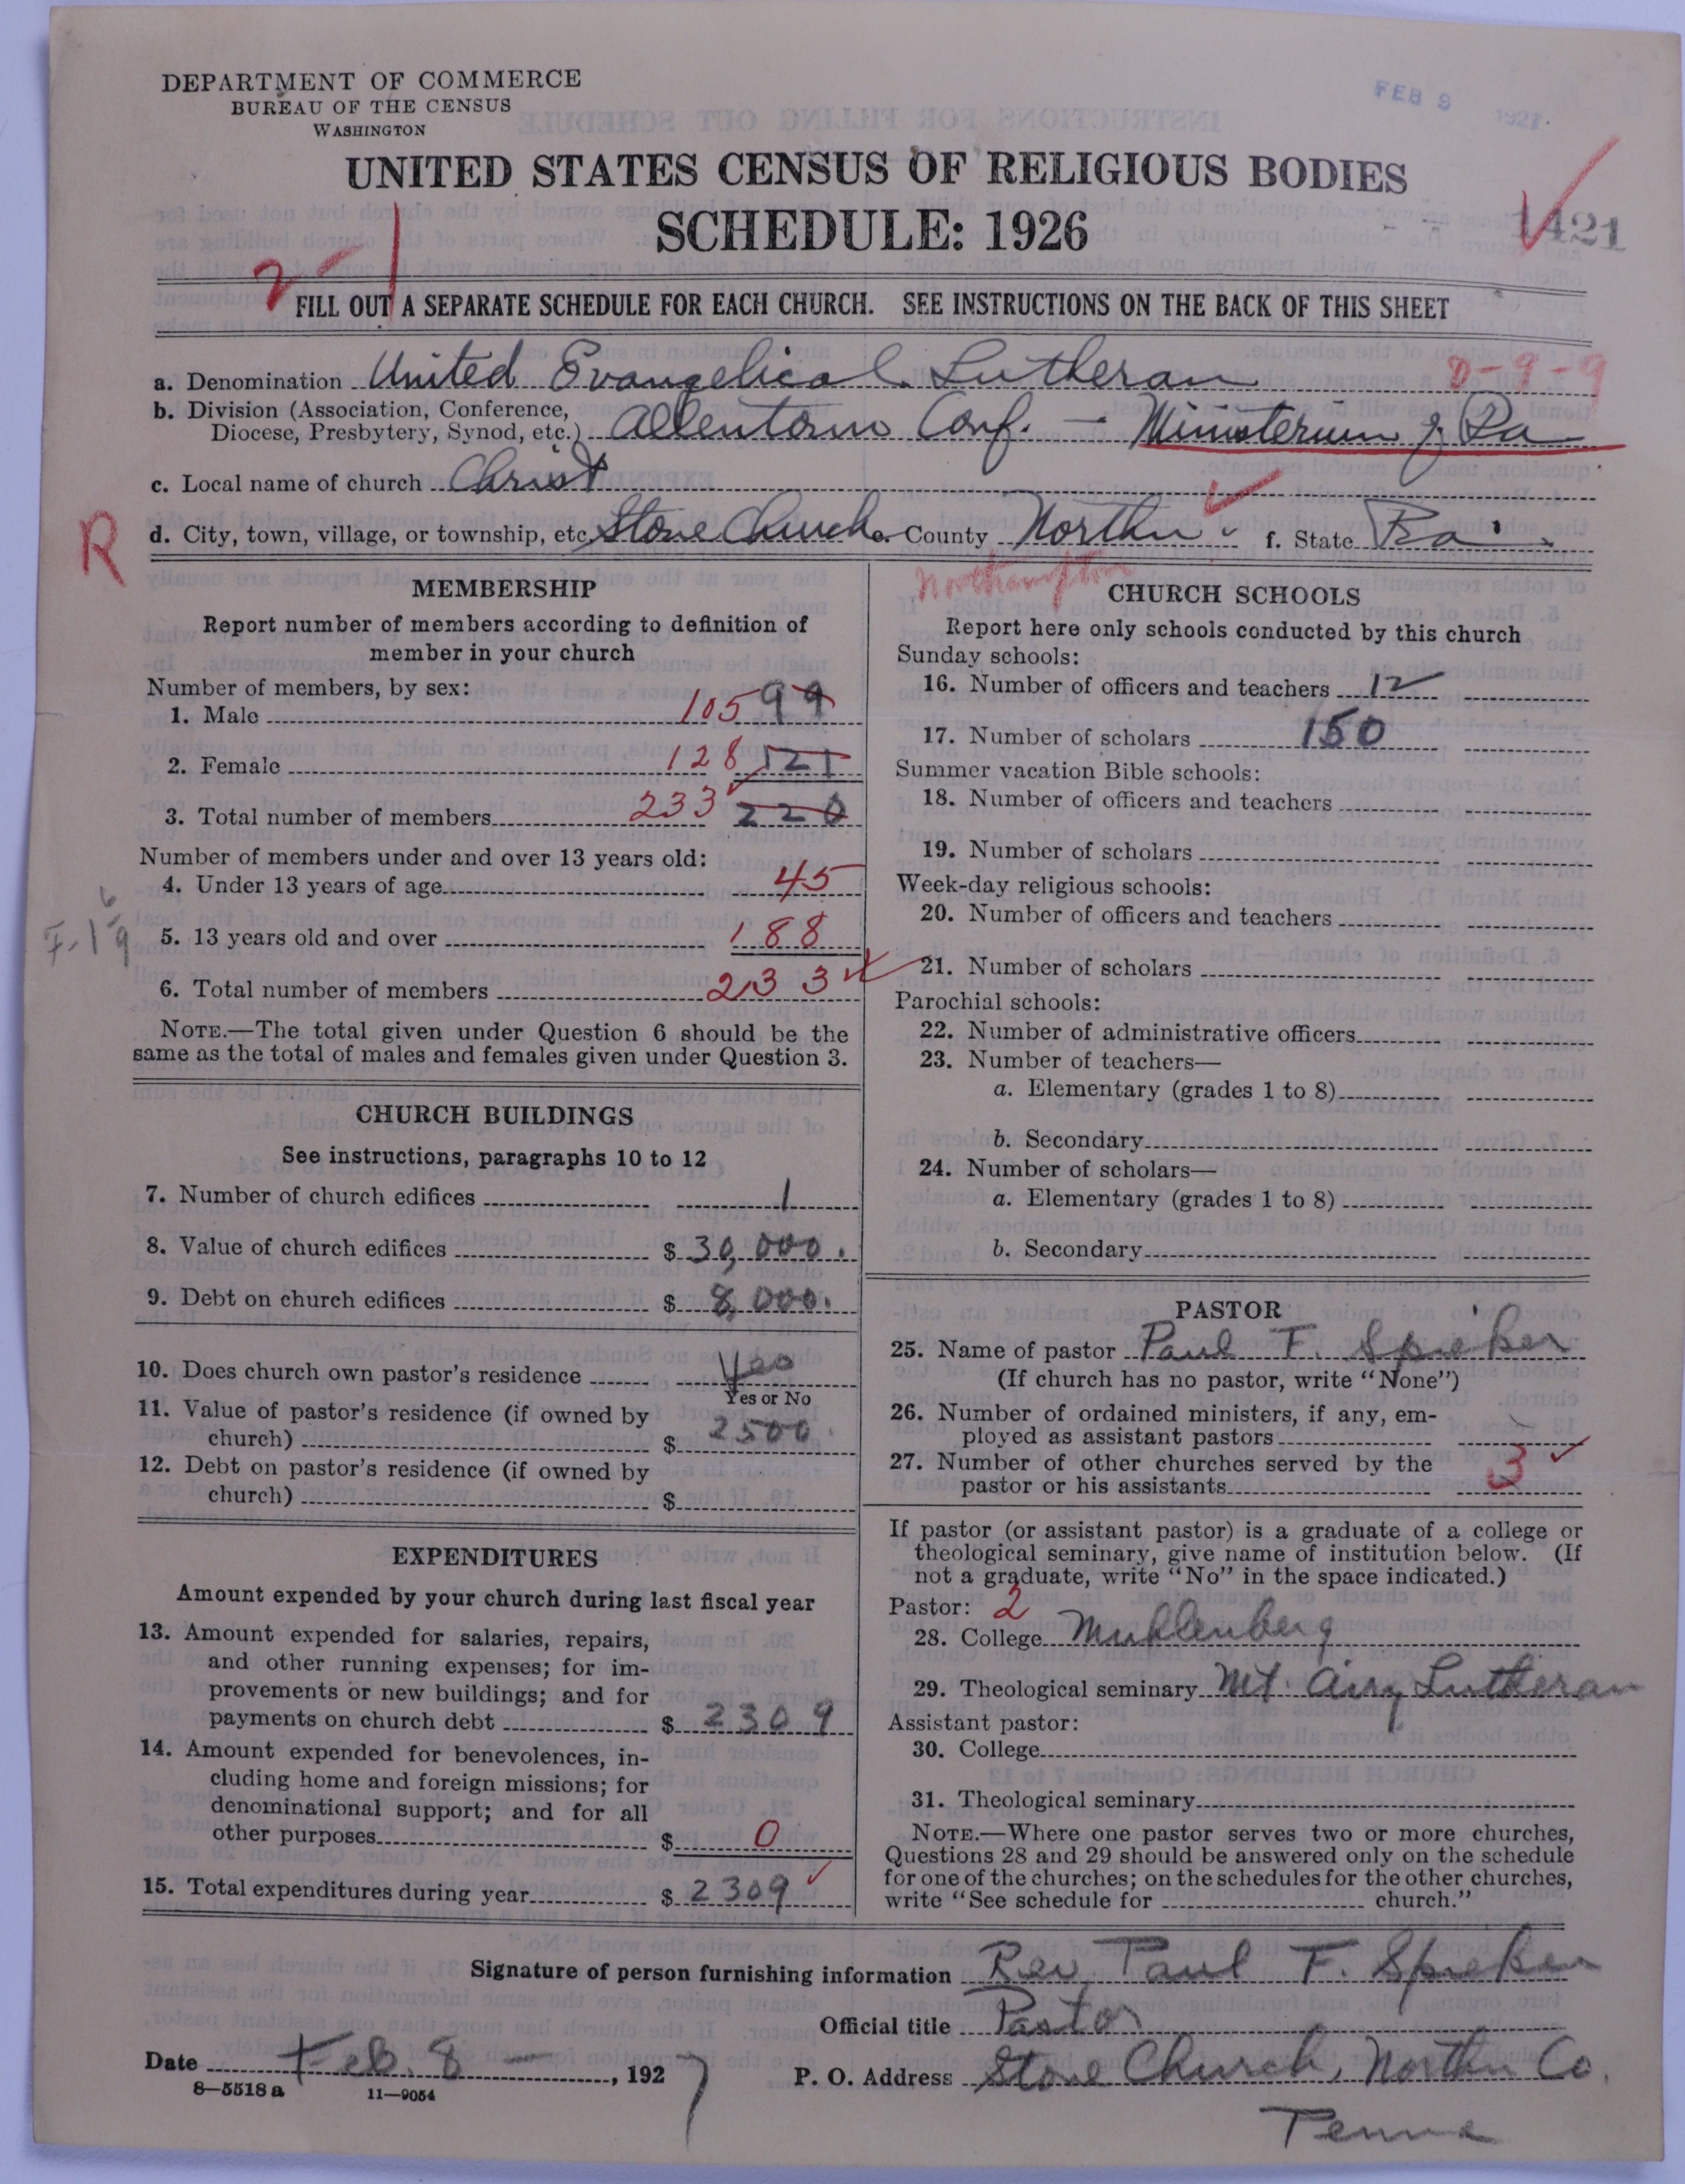 DEPARTMENT OF COMMERCE
BUREAU OF THE CENSUS
WASHINGTON
FEB 9 1927.
UNITED STATES CENSUS OF RELIGIOUS BODIES
SCHEDULE: 1926
1421
2-1
FILL OUT A SEPARATE SCHEDULE FOR EACH CHURCH. SEE INSTRUCTIONS ON THE BACK OF THIS SHEET
a. Denomination United Evangelical Lutheran 0-9-9
b. Division (Association, Conference,
Diocese, Presbytery, Synod, etc.) Allentown Conf. - Ministerium of Pa
c. Local name of church Christ
R
d. City, town, village, or township, etc. Stone Church e. County Northn f. State Pa.
Northampton
MEMBERSHIP
Report number of members according to definition of
member in your church
Number of members, by sex:
1. Male 105 99
2. Female 128 121
3. Total number of members 233 220
Number of members under and over 13 years old:
4. Under 13 years of age 45
5. 13 years old and over 188
6. Total number of members 233
NOTE.—The total given under Question 6 should be the
same as the total of males and females given under Question 3.
CHURCH BUILDINGS
See instructions, paragraphs 10 to 12
7. Number of church edifices 1
8. Value of church edifices $ 30,000.
9. Debt on church edifices $ 8,000.
10. Does church own pastor's residence Yes
Yes or No
11. Value of pastor's residence (if owned by
church) $ 2500.
12. Debt on pastor's residence (if owned by
church) $
EXPENDITURES
Amount expended by your church during last fiscal year
13. Amount expended for salaries, repairs,
and other running expenses; for im-
provements or new buildings; and for
payments on church debt $ 2309
14. Amount expended for benevolences, in-
cluding home and foreign missions; for
denominational support; and for all
other purposes $ 0
15. Total expenditures during year $ 2309
CHURCH SCHOOLS
Report here only schools conducted by this church
Sunday schools:
16. Number of officers and teachers 12
17. Number of scholars 150
Summer vacation Bible schools:
18. Number of officers and teachers
19. Number of scholars
Week-day religious schools:
20. Number of officers and teachers
21. Number of scholars
Parochial schools:
22. Number of administrative officers
23. Number of teachers—
a. Elementary (grades 1 to 8)
b. Secondary
24. Number of scholars—
a. Elementary (grades 1 to 8)
b. Secondary
PASTOR
25. Name of pastor Paul F. Spieker
(If church has no pastor, write "None")
26. Number of ordained ministers, if any, em-
ployed as assistant pastors
27. Number of other churches served by the
pastor or his assistants 3
If pastor (or assistant pastor) is a graduate of a college or
theological seminary, give name of institution below. (If
not a graduate, write "No" in the space indicated.)
Pastor: 2
28. College Muhlenberg
29. Theological seminary Mt. Airy Lutheran
Assistant pastor:
30. College
31. Theological seminary
NOTE.—Where one pastor serves two or more churches,
Questions 28 and 29 should be answered only on the schedule
for one of the churches; on the schedules for the other churches,
write "See schedule for church."
Signature of person furnishing information Rev Paul F. Spieker
Official title Pastor
Date Feb. 8 - , 1927
P. O. Address Stone Church, Northn Co.
Penna
8—5518a 11—9054